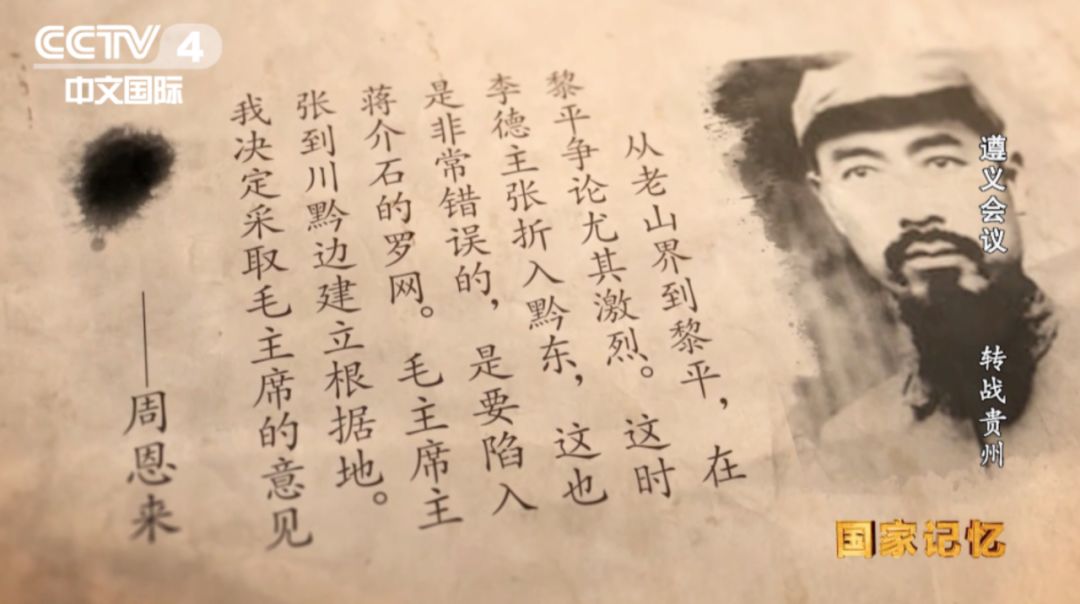 CCTV 4
中文国际
从老山界到黎平，在
黎平争论尤其激烈。这时
李德主张折入黔东，这也
是非常错误的，是要陷入
蒋介石的罗网。毛主席主
张到川黔边建立根据地。
我决定采取毛主席的意见
——周恩来
遵义会议 转战贵州
国家记忆